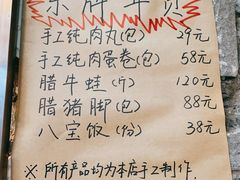 手工纯肉丸(包) 29元
手工纯肉蛋卷(包) 58元
腊牛蛙(斤) 120元
腊猪脚(包) 88元
八宝饭(份) 38元
※ 所有产品均为本店手工制作